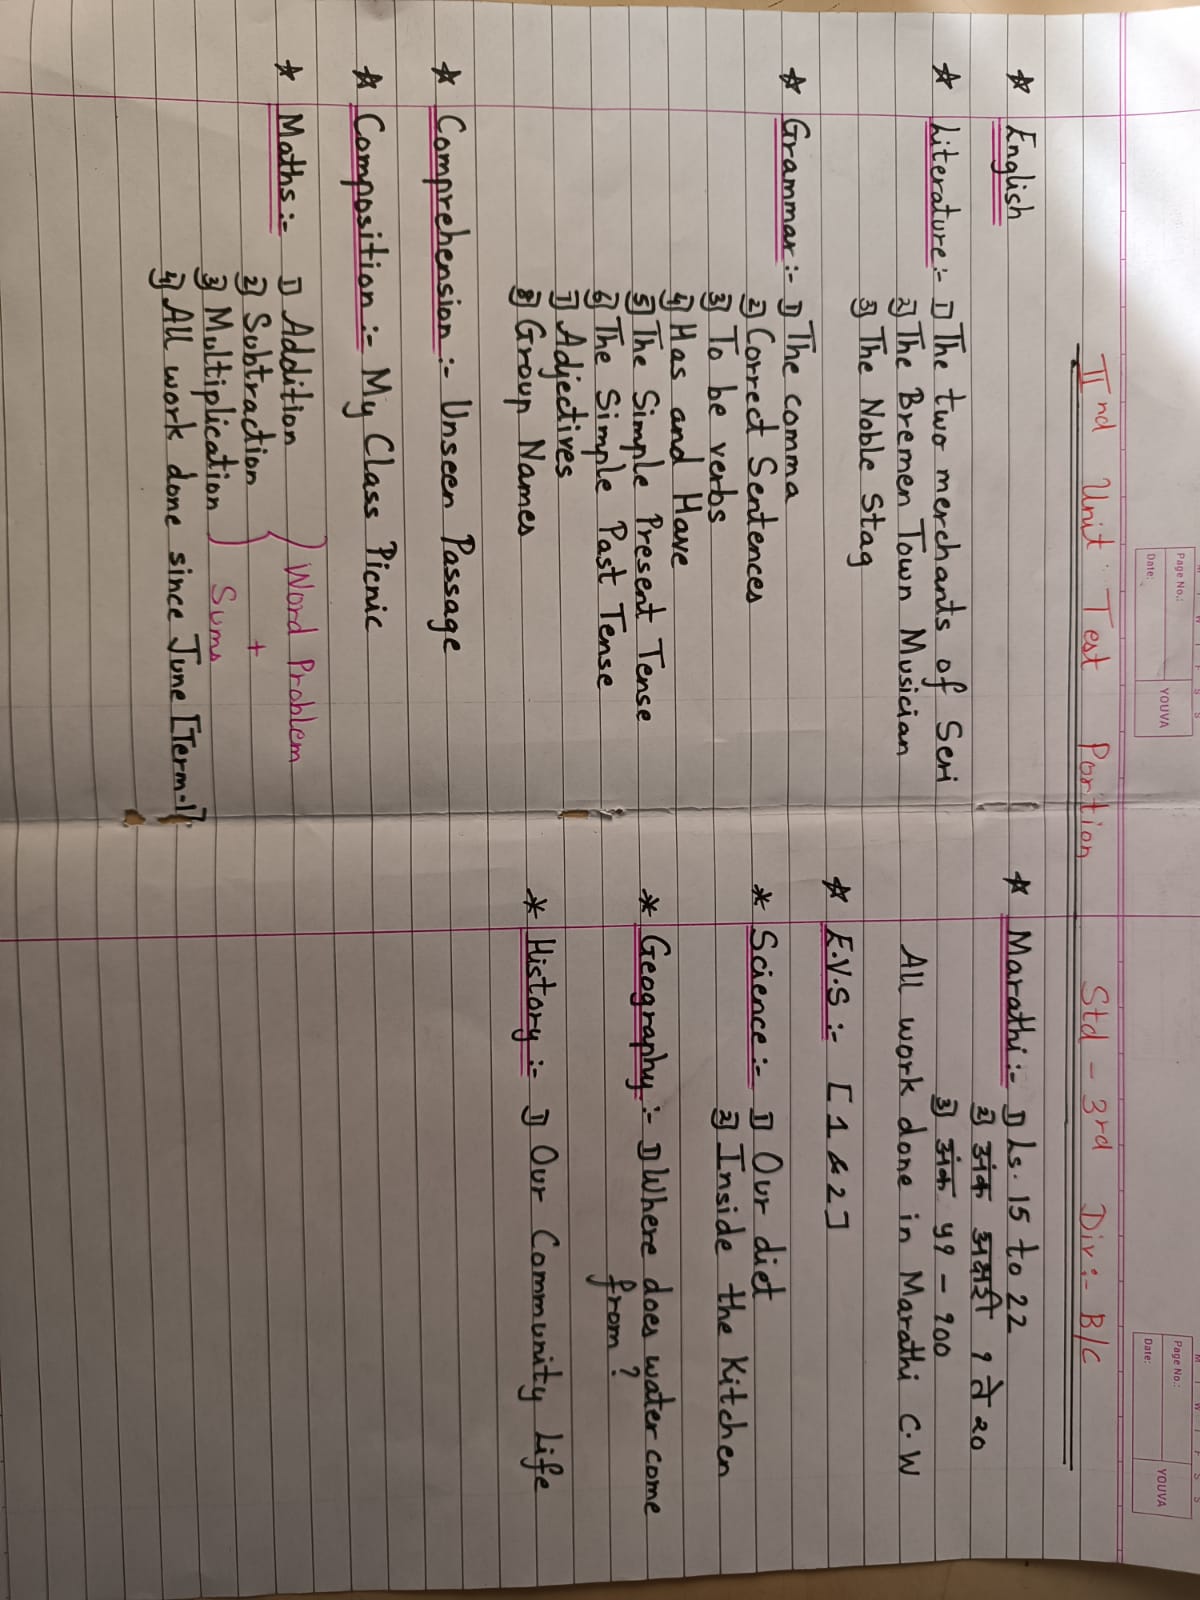 IInd Unit Test Portion Std - 3rd Div:- B/C
* English
* Literature:- 1) The two merchants of Seri
2) The Bremen Town Musician
3) The Noble Stag
* Grammar:- 1) The comma
2) Correct Sentences
3) To be verbs
4) Has and Have
5) The Simple Present Tense
6) The Simple Past Tense
7) Adjectives
8) Group Names
* Comprehension:- Unseen Passage
* Composition:- My Class Picnic
* Maths:- 1) Addition
2) Subtraction
3) Multiplication
} Word Problem
+
} Sums
4) All work done since June [Term-1]
* Marathi:- 1) Ls. 15 to 22
2) अंक अक्षरी १ ते २०
3) अंक ५१ - १००
All work done in Marathi C.W
* E.V.S:- [1 & 2]
* Science:- 1) Our diet
2) Inside the Kitchen
* Geography:- 1) Where does water come
from?
* History:- 1) Our Community Life
Page No.:
Date:
YOUVA
Page No.:
Date:
YOUVA